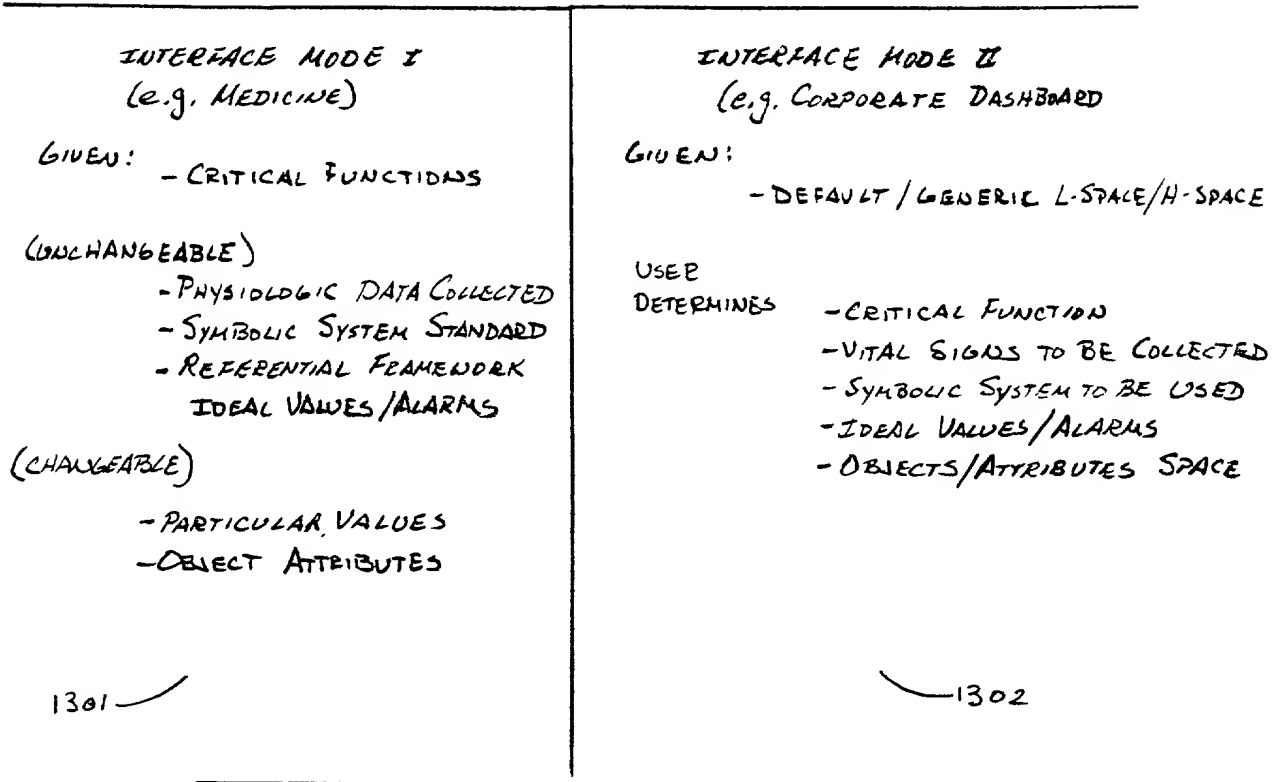 INTERFACE MODE I
(e.g. MEDICINE)
GIVEN:
- CRITICAL FUNCTIONS
(UNCHANGEABLE)
- PHYSIOLOGIC DATA COLLECTED
- SYMBOLIC SYSTEM STANDARD
- REFERENTIAL FRAMEWORK
IDEAL VALUES/ALARMS
(CHANGEABLE)
- PARTICULAR VALUES
- OBJECT ATTRIBUTES
1301
INTERFACE MODE II
(e.g. CORPORATE DASHBOARD
GIVEN:
- DEFAULT/GENERIC L-SPACE/H-SPACE
USER
DETERMINES
- CRITICAL FUNCTION
- VITAL SIGNS TO BE COLLECTED
- SYMBOLIC SYSTEM TO BE USED
- IDEAL VALUES/ALARMS
- OBJECTS/ATTRIBUTES SPACE
1302